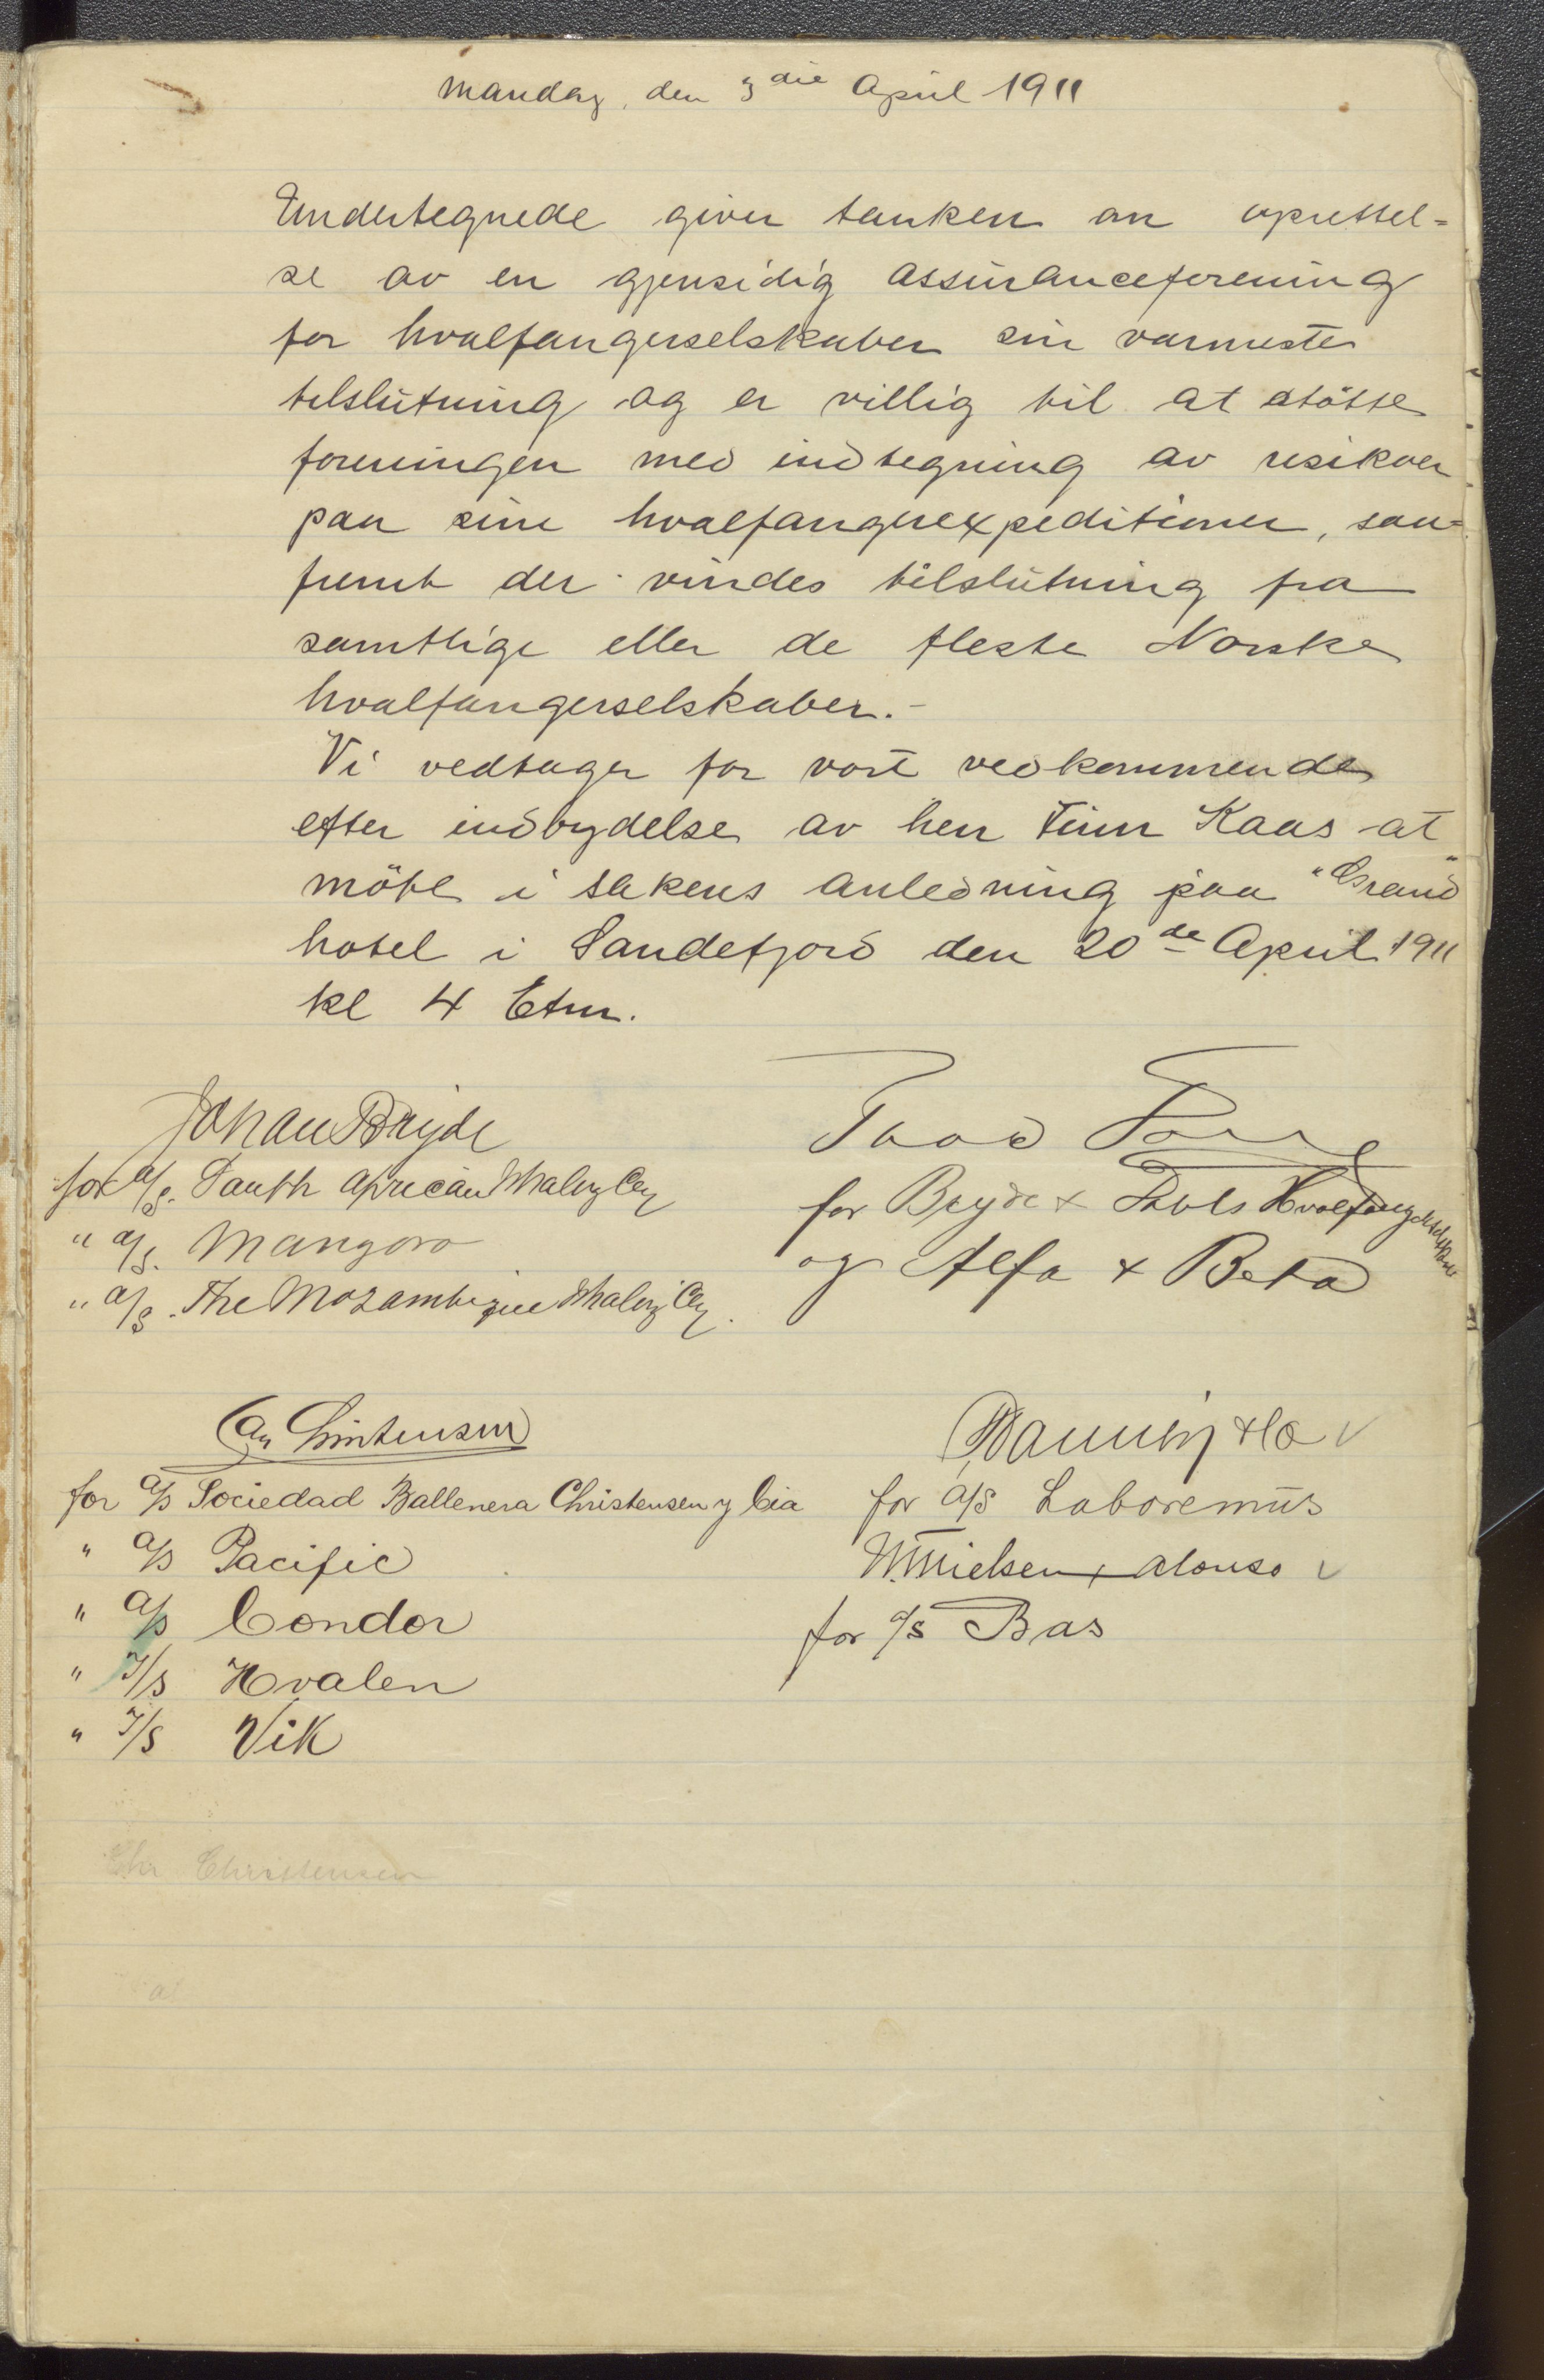 Mandag, den 3die April 1911
Undertegnede giver tanken om oprettel=
se av en gjensidig assuranceforening
for hvalfangerselskaber sin varmeste
tilslutning og er villig til at støtte
foreningen med indtegning av risikoer
paa sine hvalfangerexpeditioner, saa=
fremt der vindes tilslutning fra
samtlige eller de fleste Norske
hvalfangerselskaber.-
Vi vedtager for vort vedkommende
efter indbydelse av herr Finn Kaas at
møte i sakens anledning paa "Grand"
hotel i Sandefjord den 20de April 1911
kl 4 Etm.
Johan Bryde
for A/S. South African Whaling Cey
" A/S. Mangoro
" A/S. The Mozambique Whaling Cey.
Thor Dahl
for Bryde & Dahls Hvalfangerselskab
og Alfa & Beta
Chr Christensen
for A/S Sociedad Ballenera Christensen y Cia
" A/S Pacific
" A/S Condor
" I/S Hvalen
" I/S Vik
& Co
for A/S Laboremus
Nielsen & Alonso
for A/S Bas
Chr Christensen